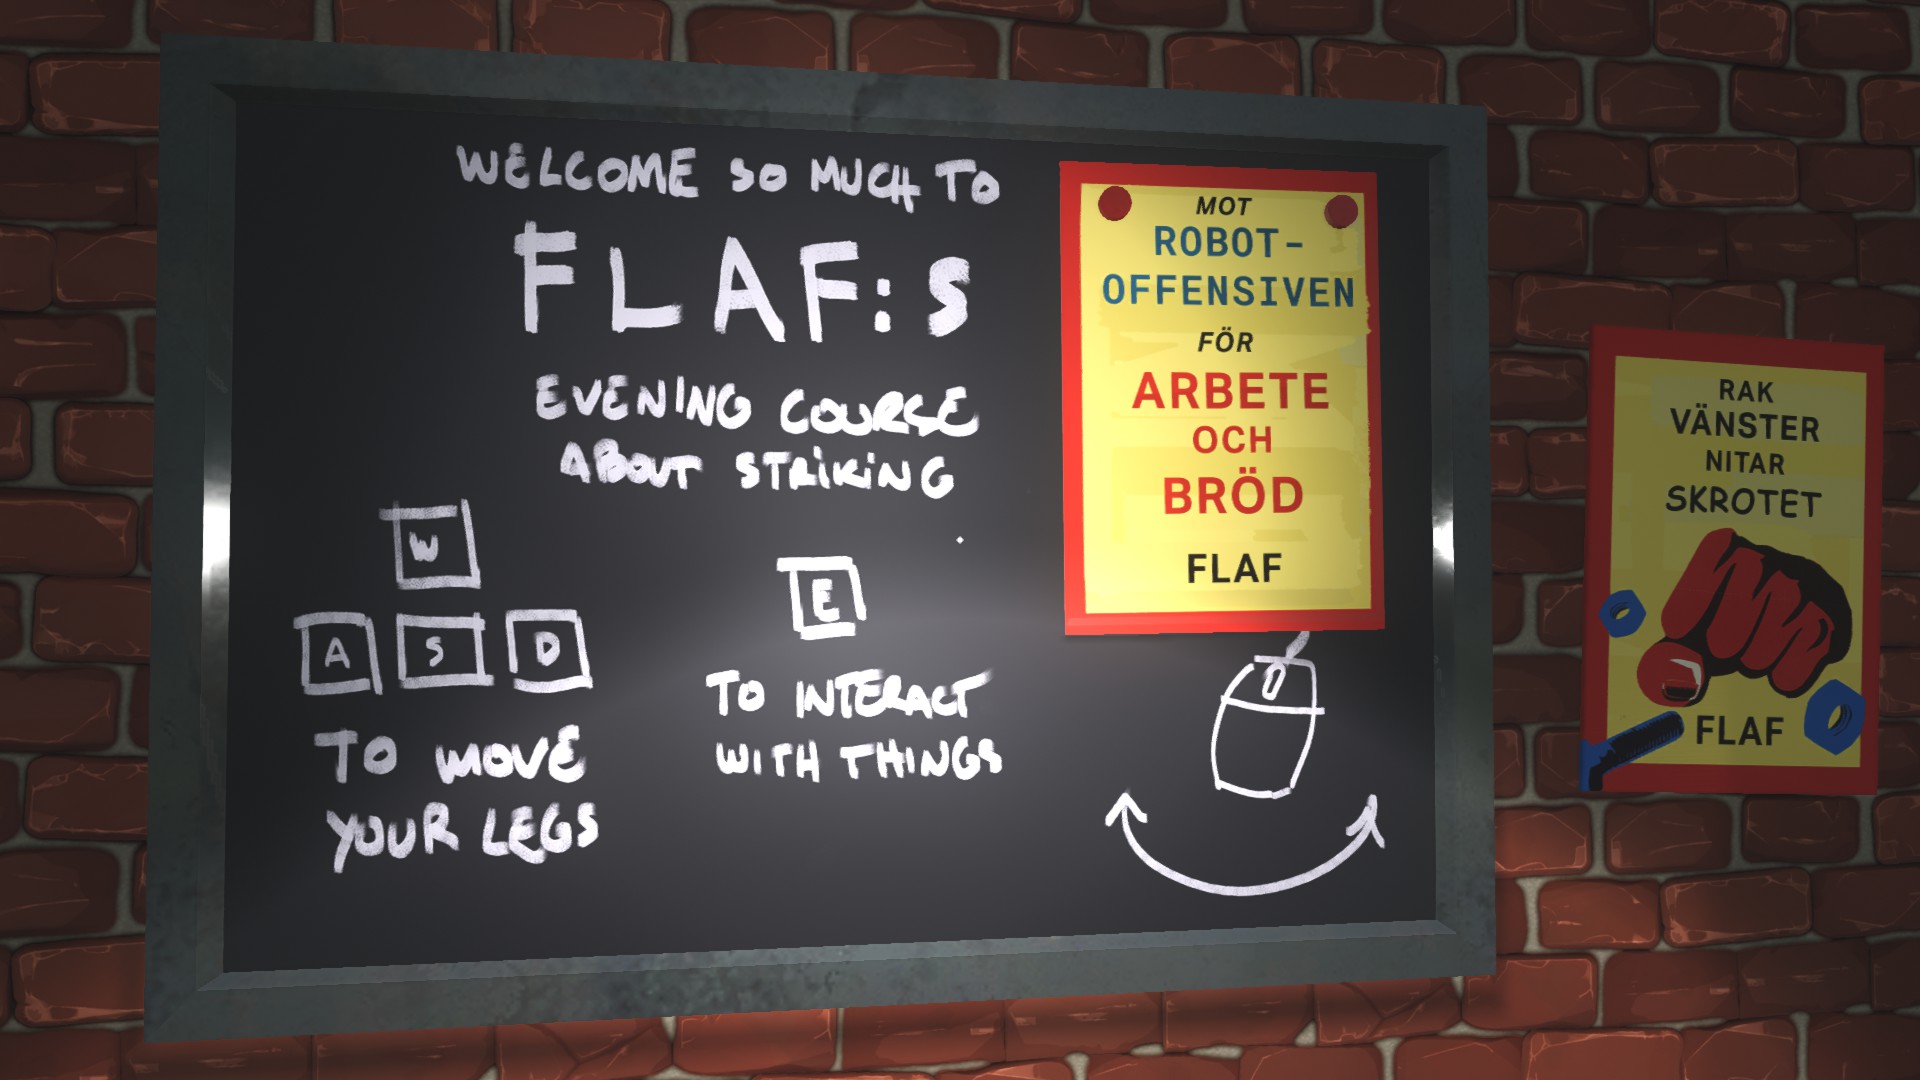 WELCOME SO MUCH TO
FLAF:S
EVENING COURSE
ABOUT STRIKING
W
A S D
TO MOVE
YOUR LEGS
E
TO INTERACT
WITH THINGS
MOT
ROBOT-
OFFENSIVEN
FÖR
ARBETE
OCH
BRÖD
FLAF
RAK
VÄNSTER
NITAR
SKROTET
FLAF